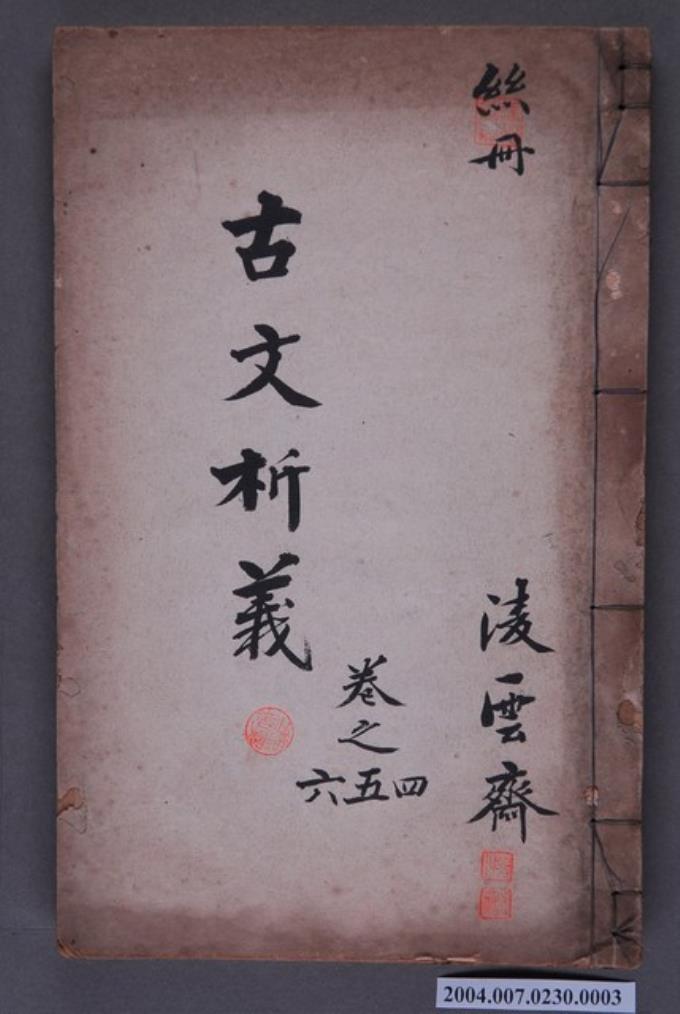 絲冊
淩雲齋
古文析義
卷之
四五六
2004.007.0230.0003